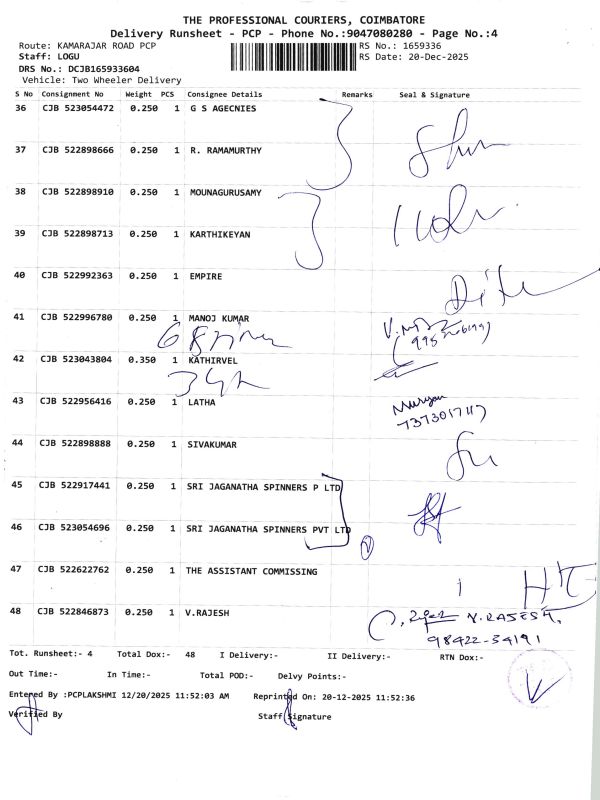 THE PROFESSIONAL COURIERS, COIMBATORE
Delivery Runsheet - PCP - Phone No.:9047080280 - Page No.:4
Route: KAMARAJAR ROAD PCP RS No.: 1659336
Staff: LOGU RS Date: 20-Dec-2025
DRS No.: DCJB165933604
Vehicle: Two Wheeler Delivery
S No Consignment No Weight PCS Consignee Details Remarks Seal & Signature
36 CJB 523054472 0.250 1 G S AGECNIES
37 CJB 522898666 0.250 1 R. RAMAMURTHY
38 CJB 522898910 0.250 1 MOUNAGURUSAMY
39 CJB 522898713 0.250 1 KARTHIKEYAN
40 CJB 522992363 0.250 1 EMPIRE
41 CJB 522996780 0.250 1 MANOJ KUMAR
42 CJB 523043804 0.350 1 KATHIRVEL
43 CJB 522956416 0.250 1 LATHA
Murugan
7373017117
44 CJB 522898888 0.250 1 SIVAKUMAR
45 CJB 522917441 0.250 1 SRI JAGANATHA SPINNERS P LTD
46 CJB 523054696 0.250 1 SRI JAGANATHA SPINNERS PVT LTD
47 CJB 522622762 0.250 1 THE ASSISTANT COMMISSING
48 CJB 522846873 0.250 1 V.RAJESH V.RAJESH.
98422-34191
Tot. Runsheet:- 4 Total Dox:- 48 I Delivery:- II Delivery:- RTN Dox:-
Out Time:- In Time:- Total POD:- Delvy Points:-
Entered By :PCPLAKSHMI 12/20/2025 11:52:03 AM Reprinted On: 20-12-2025 11:52:36
Verified By Staff Signature